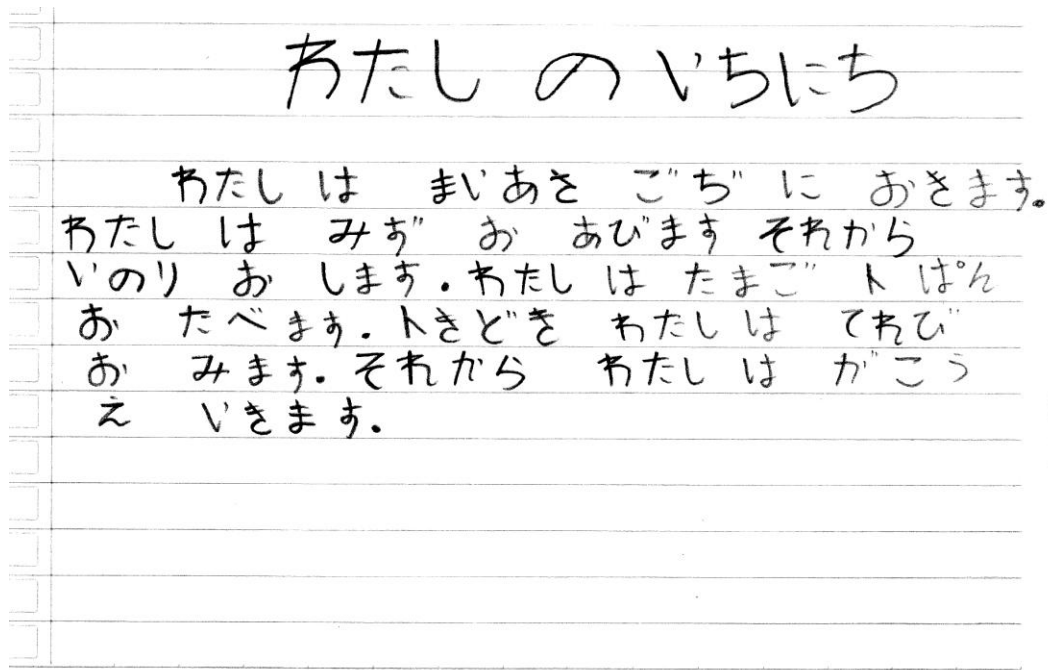 わたし の いちにち
わたし は まいあさ ごぢ に おきます。
わたし は みず お あびます それから
いのり お します. わたし は たまご ト ぱん
お たべます. トきどき わたしは てれび
お みます. それから わたし は がこう
え いきます.